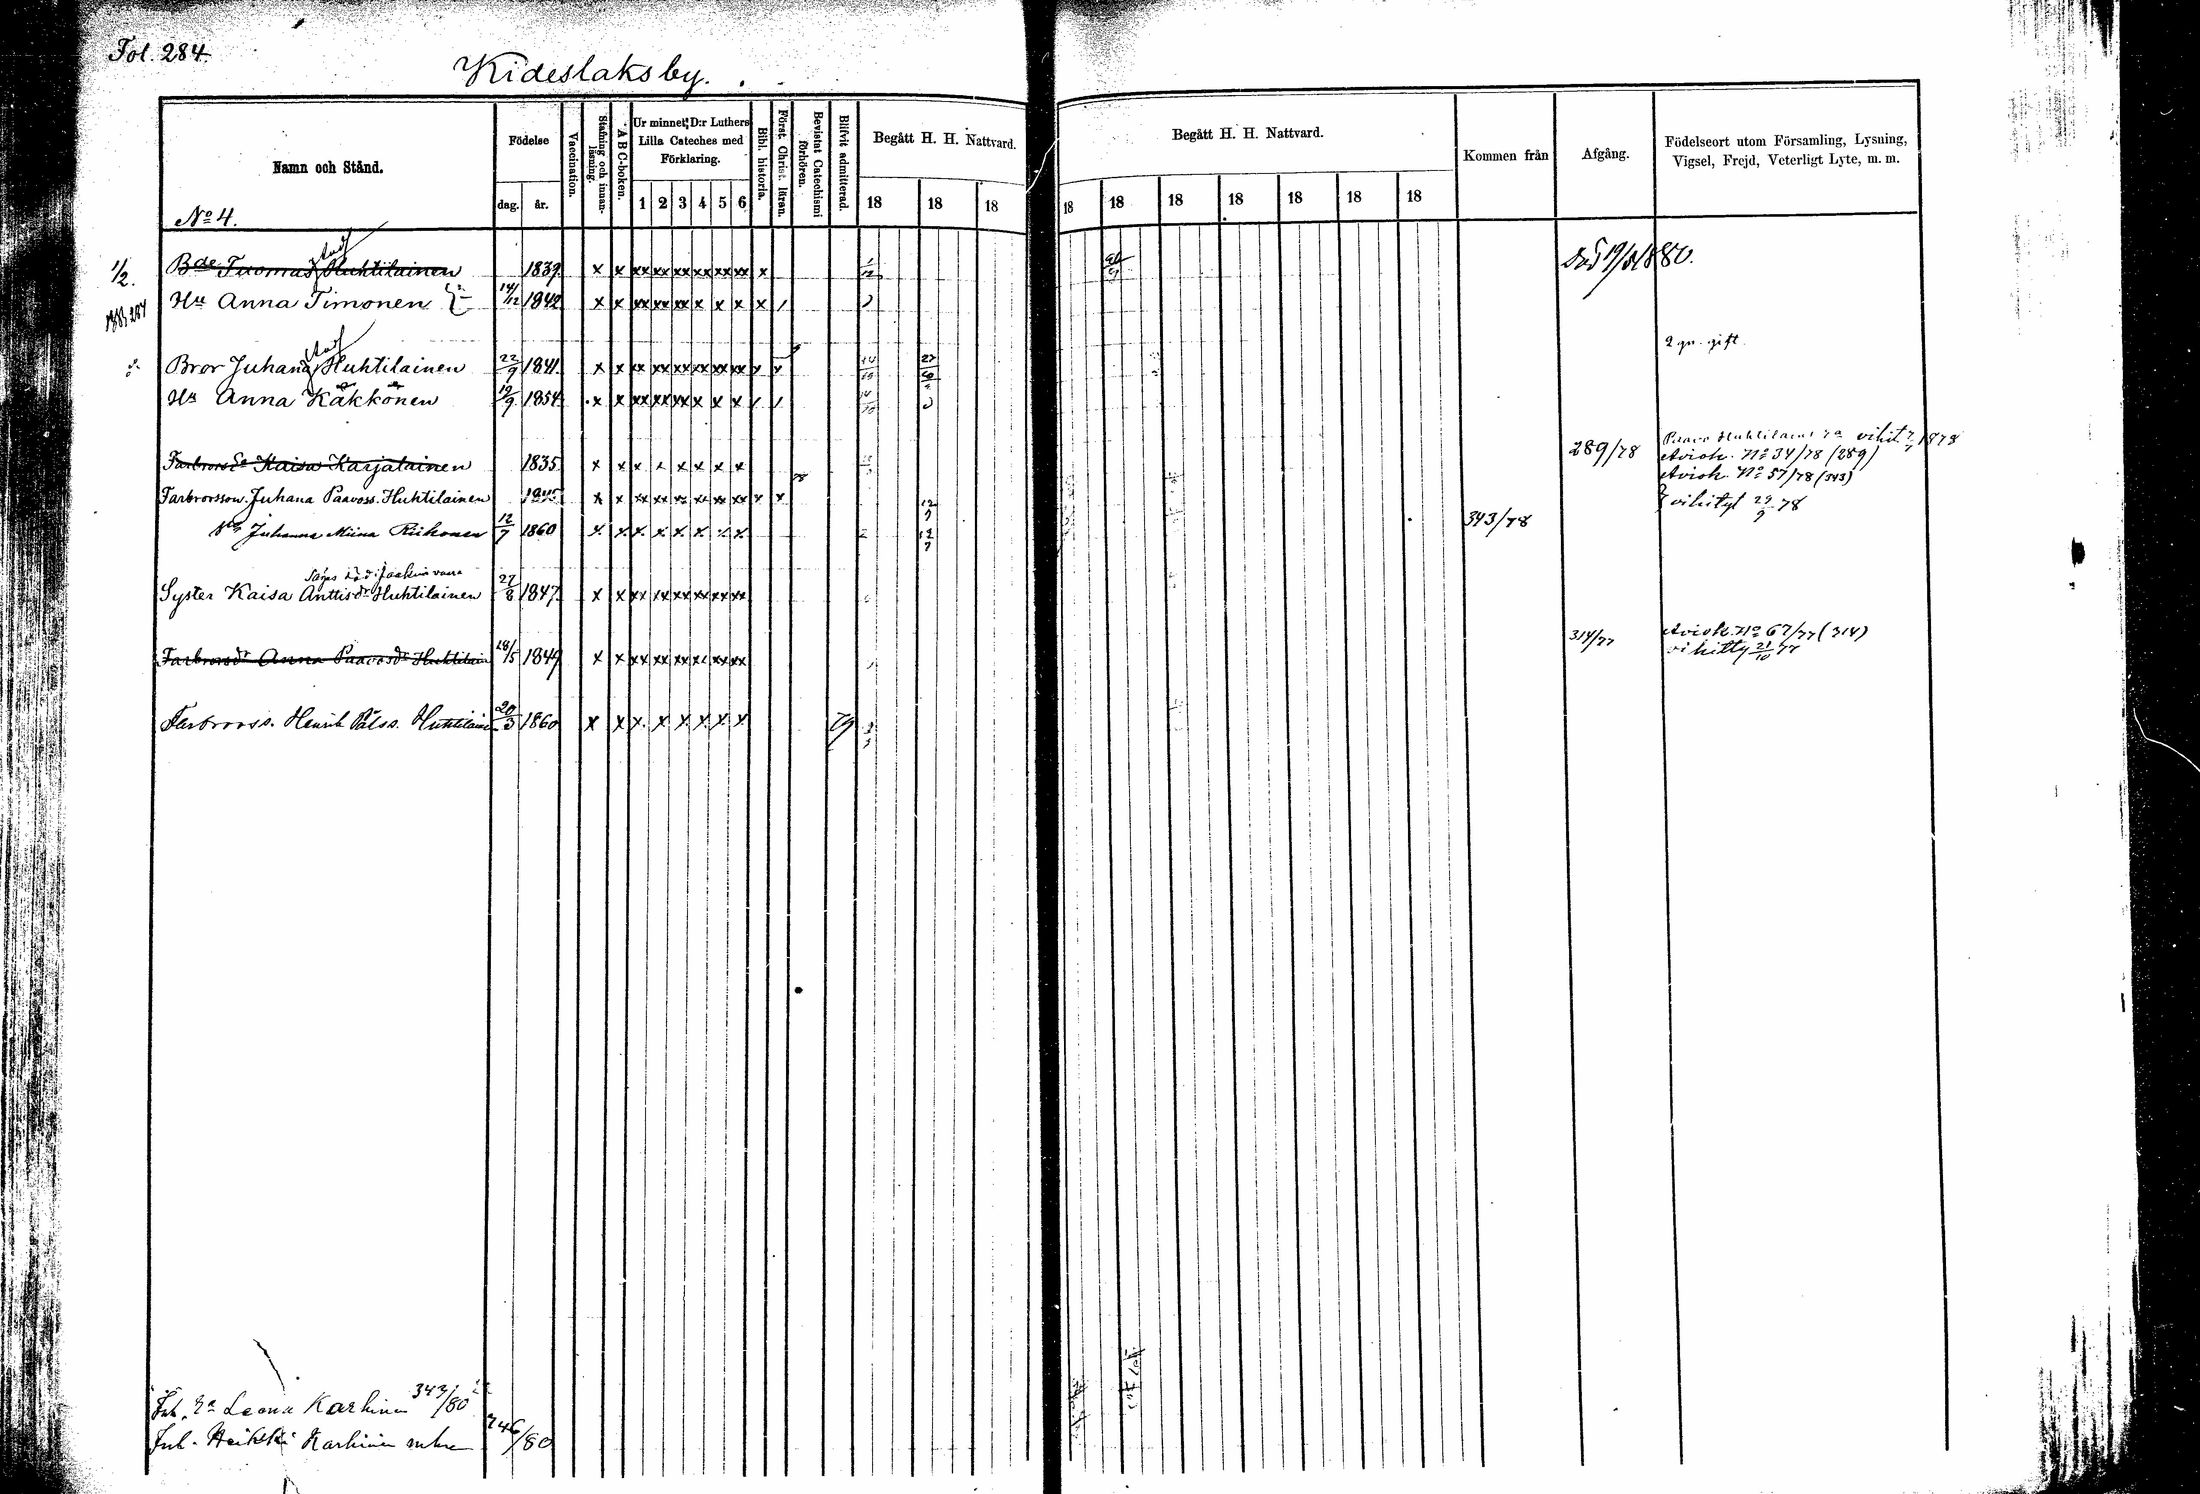 Fol. 284.
Kideslaksby.
Namn och Stånd.
Födelse
dag. år.
Vaccination.
Stafning och innanläsning.
A B C-boken.
Ur minnet D:r Luthers
Lilla Cateches med
Förklaring.
1 2 3 4 5 6
Bibl. historia.
Först. Christ. läran.
Bevistat Catechismi förhören.
Blifvit admitterad.
Begått H. H. Nattvard.
18 18 18
Begått H. H. Nattvard.
18 18 18 18 18 18 18
Kommen från
Afgång.
Födelseort utom Församling, Lysning,
Vigsel, Frejd, Veterligt Lyte, m. m.
No 4.
1/2. Bde Tuomas Huhtilainen 1839 x x xx xx xx xx xx xx x Död 19/5 1880.
Hu Anna Timonen 14/12 1842 x x xx xx xx x x x x /
2 gn. gift
Bror Juhana Huhtilainen 22/9 1841. x x xx xx xx xx xx xx x x 27
Hu Anna Käkkönen 19/9 1854 x x xx xx xx x x x / /
Farbrors Ea Kaisa Karjalainen 1835 x x x x x x x x 289/78 Paavo vihit 1878
Aviok. No 34/78 (289)
Aviok. No 57/78 (343)
Farbrorsson Juhana Paavoss. Huhtilainen 1845 x x xx xx xx xx xx xx x x 12/7 vihityt 29/9 78
Hu Juhanna Miina Riikonen 12/7 1860 x x x x x x x x 12/7 343/78
Säges död i Jaakkimvaara
Syster Kaisa Anttisdr Huhtilainen 27/8 1847 x x xx xx xx xx xx xx
Farbrorsdr Anna Paavosdr Huhtilain 28/5 1849 x x xx xx xx xx xx xx 314/77 Aviok. No 67/77 (314)
vihitty 21/10 77
Farbrorss. Henrik Pålss. Huhtilaine 20/3 1860 x x x x x x x x 79
Inh. Ea Leena Karhinen 343/80
Inh. Heikki Karhinen 746/80